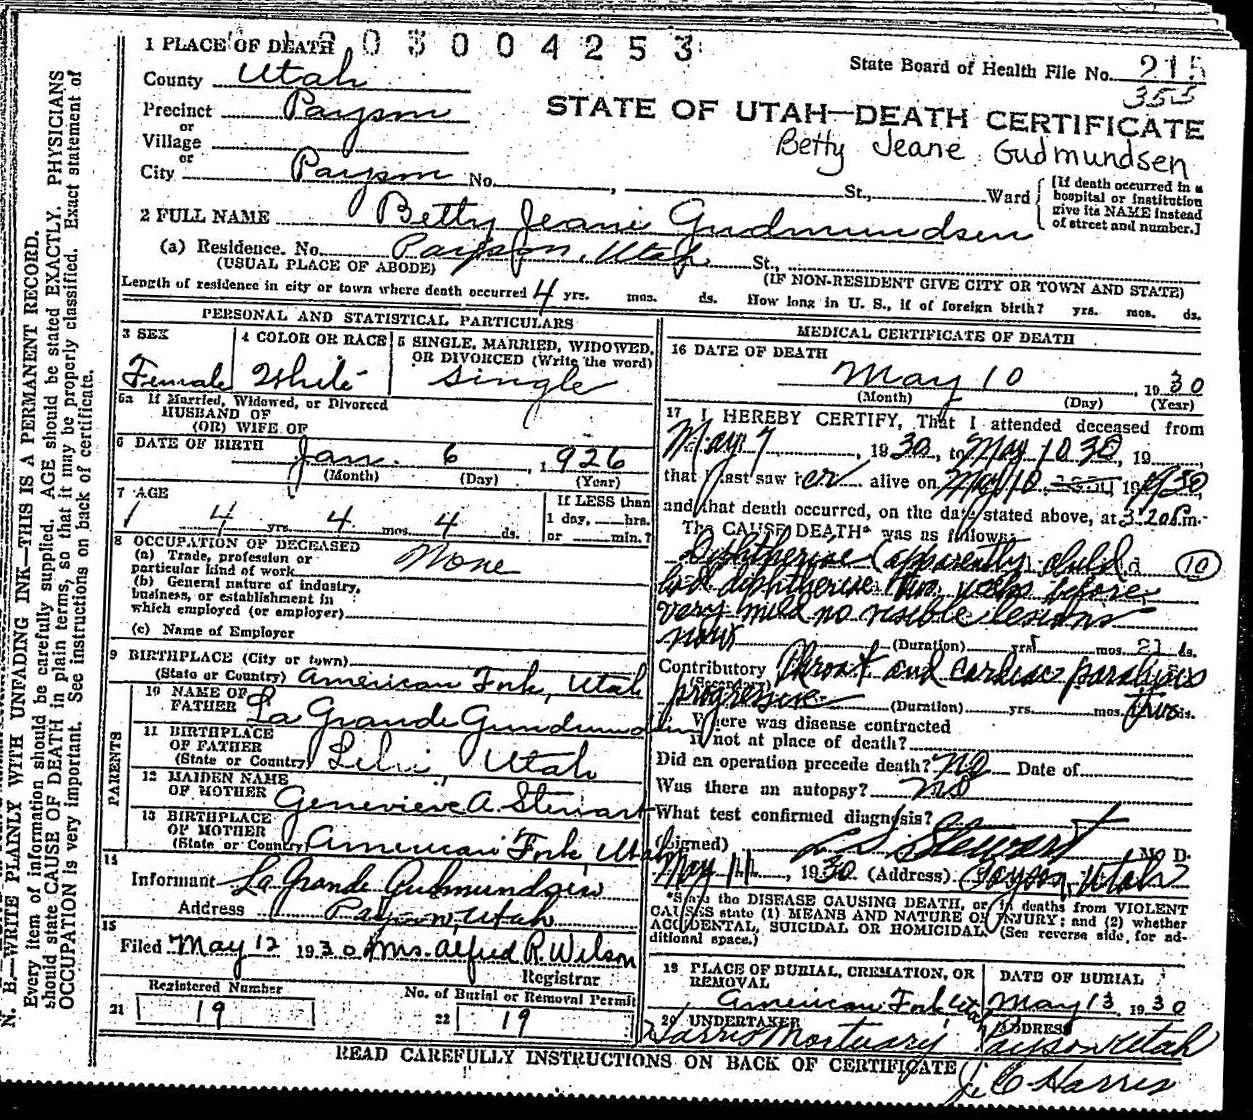 1 PLACE OF DEATH
3 0 0 4 2 5 3
County Utah
State Board of Health File No. 215
355
Precinct Payson
or
Village
or
City Payson No. , St., Ward
STATE OF UTAH—DEATH CERTIFICATE
Betty Jeane Gudmundsen
[If death occurred in a
hospital or institution
give its NAME instead
of street and number.]
2 FULL NAME Betty Jeane Gudmundsen
(a) Residence. No. Payson, Utah St.,
(USUAL PLACE OF ABODE) (IF NON-RESIDENT GIVE CITY OR TOWN AND STATE)
Length of residence in city or town where death occurred 4 yrs. mos. ds. How long in U. S., if of foreign birth? yrs. mos. ds.
PERSONAL AND STATISTICAL PARTICULARS
3 SEX
Female
4 COLOR OR RACE
White
5 SINGLE, MARRIED, WIDOWED,
OR DIVORCED (Write the word)
Single
5a If Married, Widowed, or Divorced
HUSBAND OF
(OR) WIFE OF
6 DATE OF BIRTH
Jan. 6, 1926
(Month) (Day) (Year)
7 AGE
4 yrs. 4 mos. 4 ds.
If LESS than
1 day, hrs.
or min.?
8 OCCUPATION OF DECEASED
(a) Trade, profession or
particular kind of work None
(b) General nature of industry,
business, or establishment in
which employed (or employer)
(c) Name of Employer
9 BIRTHPLACE (City or town)
(State or Country) American Fork, Utah
PARENTS
10 NAME OF
FATHER La Grande Gundmundsen
11 BIRTHPLACE
OF FATHER
(State or Country) Lehi, Utah
12 MAIDEN NAME
OF MOTHER Genevieve A. Stewart
13 BIRTHPLACE
OF MOTHER
(State or Country) American Fork, Utah
14
Informant La Grande Gudmundsen
Address Payson, Utah
15
Filed May 12 1930 Mrs. Alfred R. Wilson
Registrar
Registered Number
21 19
No. of Burial or Removal Permit
22 19
MEDICAL CERTIFICATE OF DEATH
16 DATE OF DEATH
May 10, 1930
(Month) (Day) (Year)
17 I HEREBY CERTIFY, That I attended deceased from
May 7, 1930, to May 10 30, 19
that I last saw her alive on May 10 1930,
and that death occurred, on the date stated above, at 3:20 P.m.
The CAUSE DEATH* was as follows:
Diphtheria (apparently child 10
had diphtheria two weeks before
very mild no visible lesions
now
(Duration) yrs. mos. 21 ds.
Contributory Throat and cardiac paralysis
(Secondary)
progressive (Duration) yrs. mos. two ds.
Where was disease contracted
if not at place of death?
Did an operation precede death? No Date of
Was there an autopsy? no
What test confirmed diagnosis?
(Signed) L S Stewart M. D.
May 11, 1930. (Address) Payson, Utah
*State the DISEASE CAUSING DEATH, or, in deaths from VIOLENT
CAUSES state (1) MEANS AND NATURE OF INJURY; and (2) whether
ACCIDENTAL, SUICIDAL OR HOMICIDAL. (See reverse side for ad-
ditional space.)
19 PLACE OF BURIAL, CREMATION, OR
REMOVAL
American Fork Utah
DATE OF BURIAL
May 13, 1930
20 UNDERTAKER
Harris Mortuary
ADDRESS
Payson Utah
J. C Harris
READ CAREFULLY INSTRUCTIONS ON BACK OF CERTIFICATE
N. B.—WRITE PLAINLY WITH UNFADING INK—THIS IS A PERMANENT RECORD.
Every item of information should be carefully supplied. AGE should be stated EXACTLY. PHYSICIANS
should state CAUSE OF DEATH in plain terms, so that it may be properly classified. Exact statement of
OCCUPATION is very important. See instructions on back of certificate.